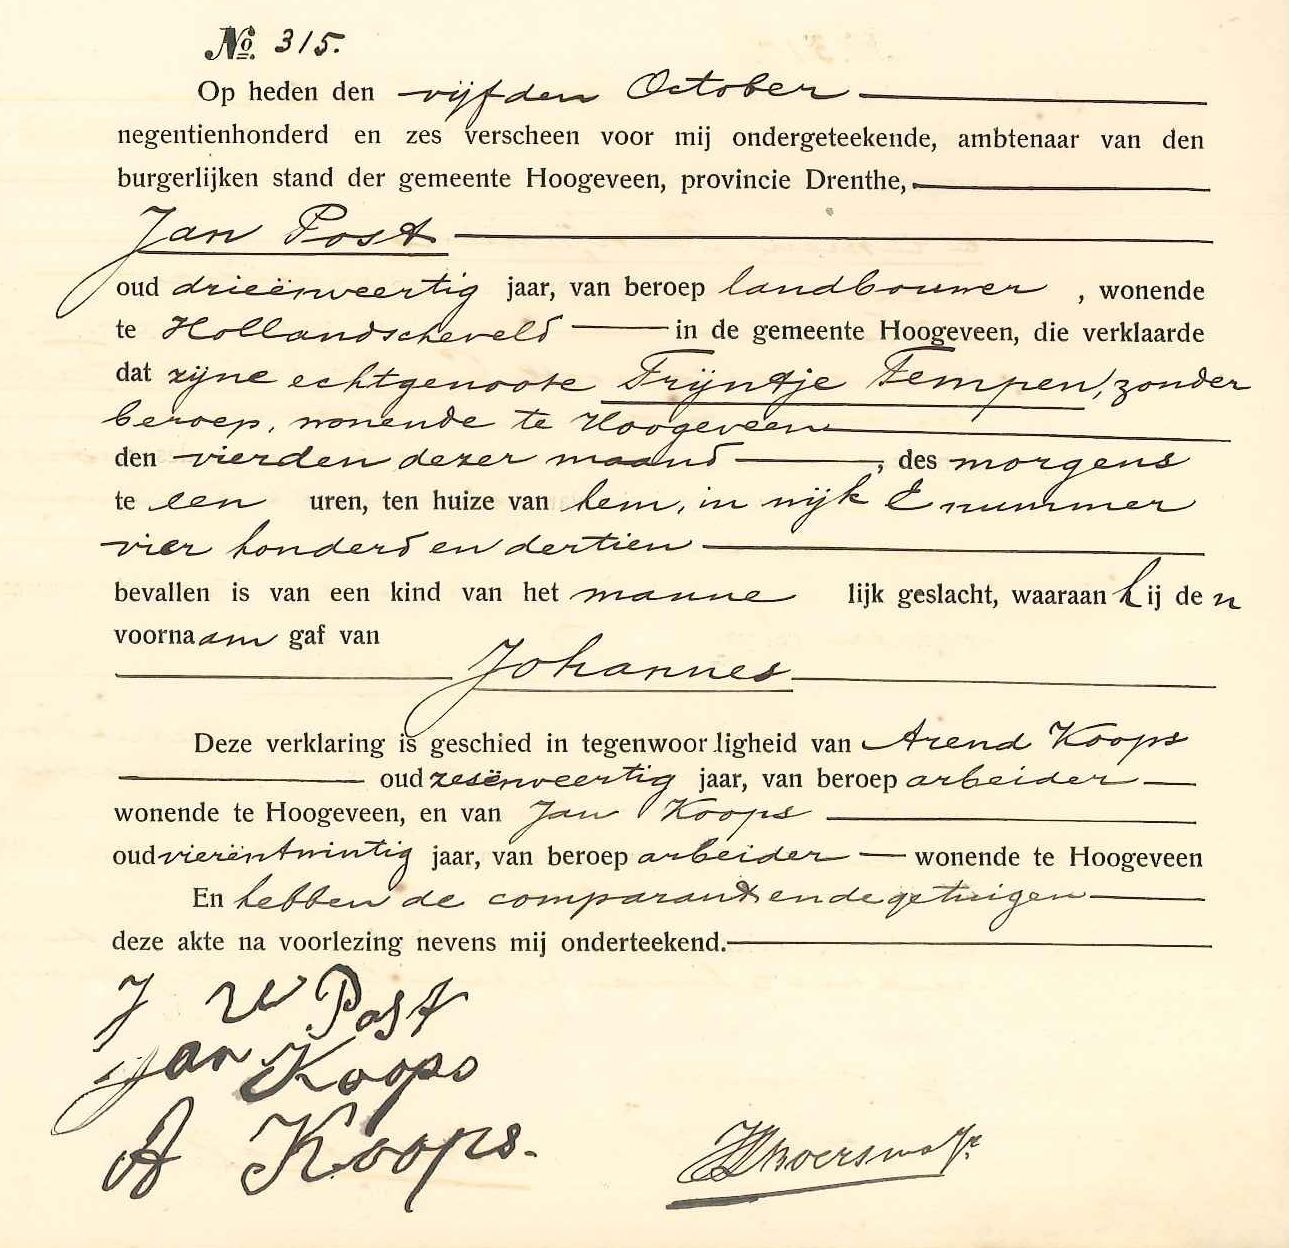 No. 315.
Op heden den vijfden October
negentienhonderd en zes verscheen voor mij ondergeteekende, ambtenaar van den
burgerlijken stand der gemeente Hoogeveen, provincie Drenthe,
Jan Post
oud drieënveertig jaar, van beroep landbouwer , wonende
te Hollandscheveld in de gemeente Hoogeveen, die verklaarde
dat zijne echtgenoote Trijntje Tempen, zonder
beroep, wonende te Hoogeveen
den vierden dezer maand , des morgens
te een uren, ten huize van hem, in wijk E nummer
vier honderd en dertien
bevallen is van een kind van het manne lijk geslacht, waaraan hij den
voornaam gaf van
Johannes
Deze verklaring is geschied in tegenwoordigheid van Arend Koops
oud zesënveertig jaar, van beroep arbeider
wonende te Hoogeveen, en van Jan Koops
oud vierentwintig jaar, van beroep arbeider wonende te Hoogeveen
En hebben de comparant en de getuigen
deze akte na voorlezing nevens mij onderteekend.
J W Post
Jan Koops
A Koops.